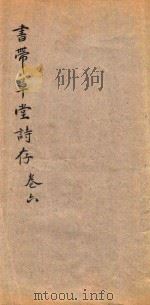 書帶草堂詩存卷六